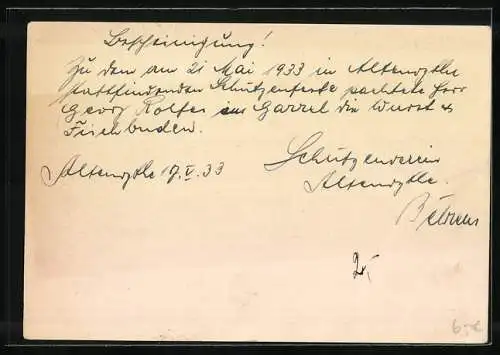 Bescheinigung!
Zu dem am 21 Mai 1933 in Altenoythe
stattfindenden Schützenfeste pachtete Herr
Georg Rolfes aus Garrel die Wurst &
Fischbuden.
Altenoythe 17.V.33
Schützenverein
Altenoythe.
Behrens
2,-